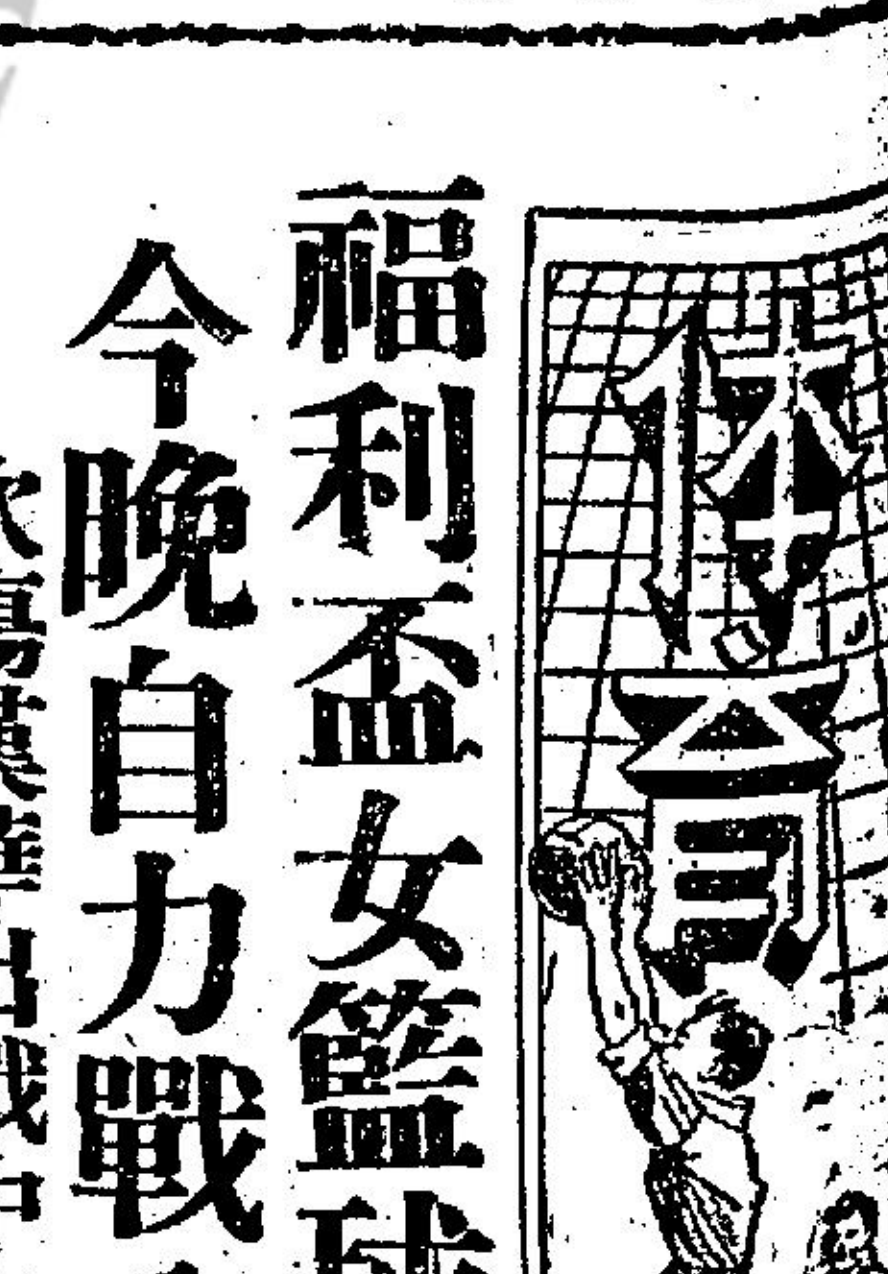 体育
福利盃女籃球
今晚自力戰